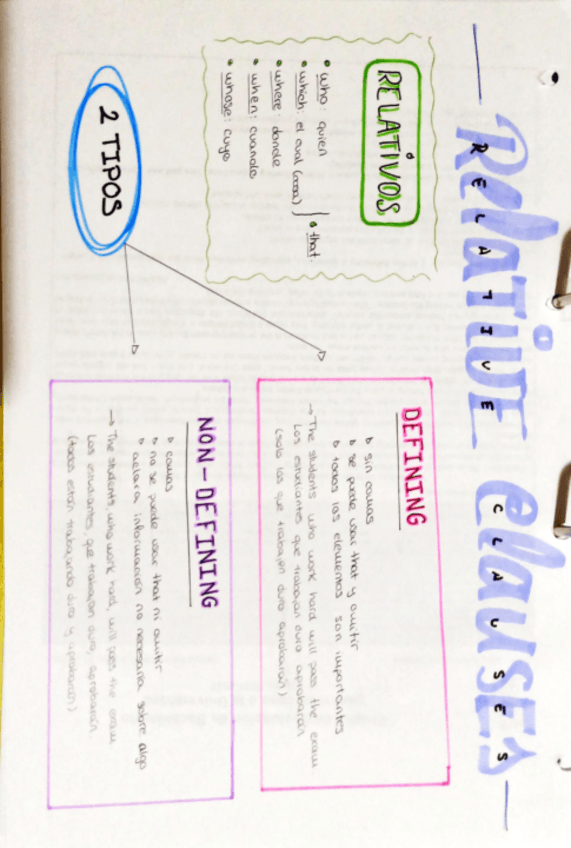 RELATIVE CLAUSES
RELATIVE CLAUSES
RELATIVOS
• who: quien
• which: el cual (cosa) } • that.
• where: donde
• when: cuando
• whose: cuyo
2 TIPOS
DEFINING
• sin comas
• se puede usar that y omitir
• todos los elementos son importantes
→ The students who work hard will pass the exam
Los estudiantes que trabajan duro aprobarán
(solo los que trabajen duro aprobarán)
NON-DEFINING
• comas
• no se puede usar that ni omitir
• aclara información no necesaria sobre algo
→ The students, who work hard, will pass the exam
Los estudiantes que trabajan duro, aprobarán.
(todos están trabajando duro y aprobarán)